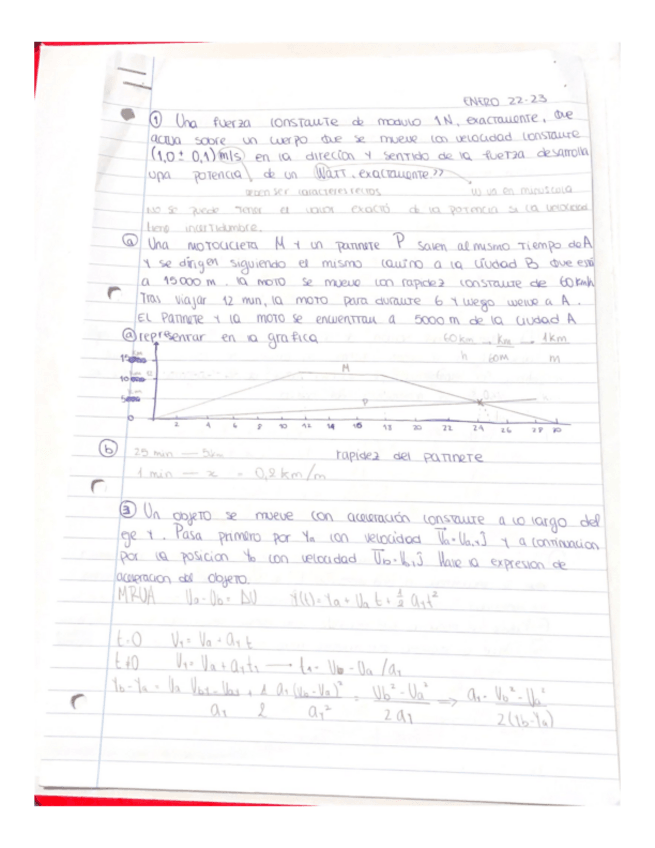 ENERO 22-23
① Una fuerza constante de modulo 1N, exactamente, que
actua sobre un cuerpo que se mueve con velocidad constante
(1,0 ± 0,1) m/s en la direcion y sentido de la fuerza desarrolla
una potencia, de un Watt, exactamente >>
deben ser caracteres rectos w va en minuscula
no se puede tener el valor exacto de la potencia si la velocidad
tiene incertidumbre.
② Una motocicleta M y un patinete P salen al mismo tiempo de A
y se dirigen siguiendo el mismo camino a la ciudad B que está
a 15000 m. la moto se mueve con rapidez constante de 60 km/h
Tras viajar 12 min, la moto para durante 6 y luego vuelve a A.
El patinete y la moto se encuentran a 5000 m de la ciudad A
ⓐ representar en la grafica 60 km/h → km/60m → 1km/m
15000
10000
5000
0
M
P
2 4 6 8 10 12 14 16 18 20 22 24 26 28 30
ⓑ 25 min — 5km rapidez del patinete
1 min — x = 0,2 km/m
③ Un objeto se mueve con aceleración constante a lo largo del
eje Y. Pasa primero por Ya con velocidad Ua = Ua,j y a continuacion
por la posicion Yb con velocidad Ub = Ub,j Halle la expresion de
aceleracion del objeto.
MRUA Ua - Ub = ΔU Y(t) = Ya + Ua t + 1/2 a₁t²
t=0 V₁ = Va + a₁ t
t≠0 V₁ = Va + a₁t₁ → t₁ = Ub - Ua / a₁
Yb - Ya = Ua (Ub₁ - Ua₁)/a₁ + 1/2 a₁ (Ub - Ua)²/a₁² = (Ub² - Ua²)/2a₁ ⇒ a₁ = (Vb² - Ua²)/2(Yb - Ya)